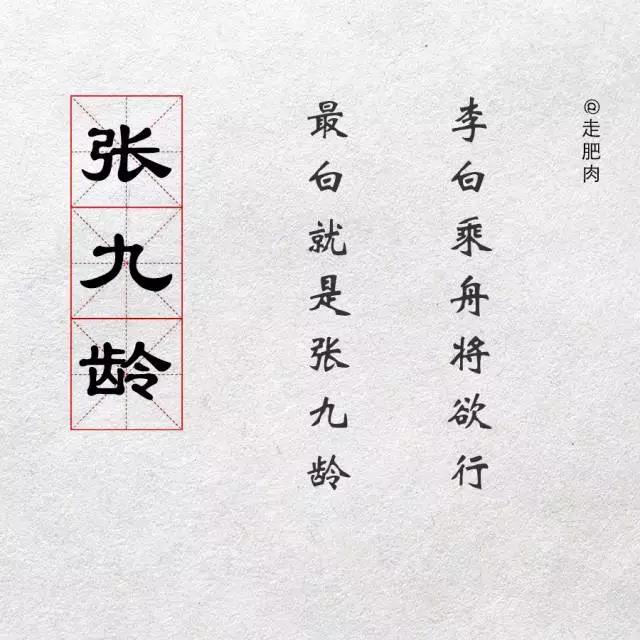 @走肥肉
李白乘舟将欲行
最白就是张九龄
张九龄